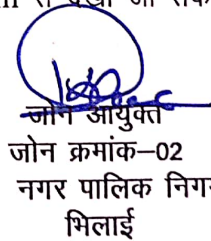 से देखा जा सक
जोन आयुक्त
जोन क्रमांक–02
नगर पालिक निग
भिलाई